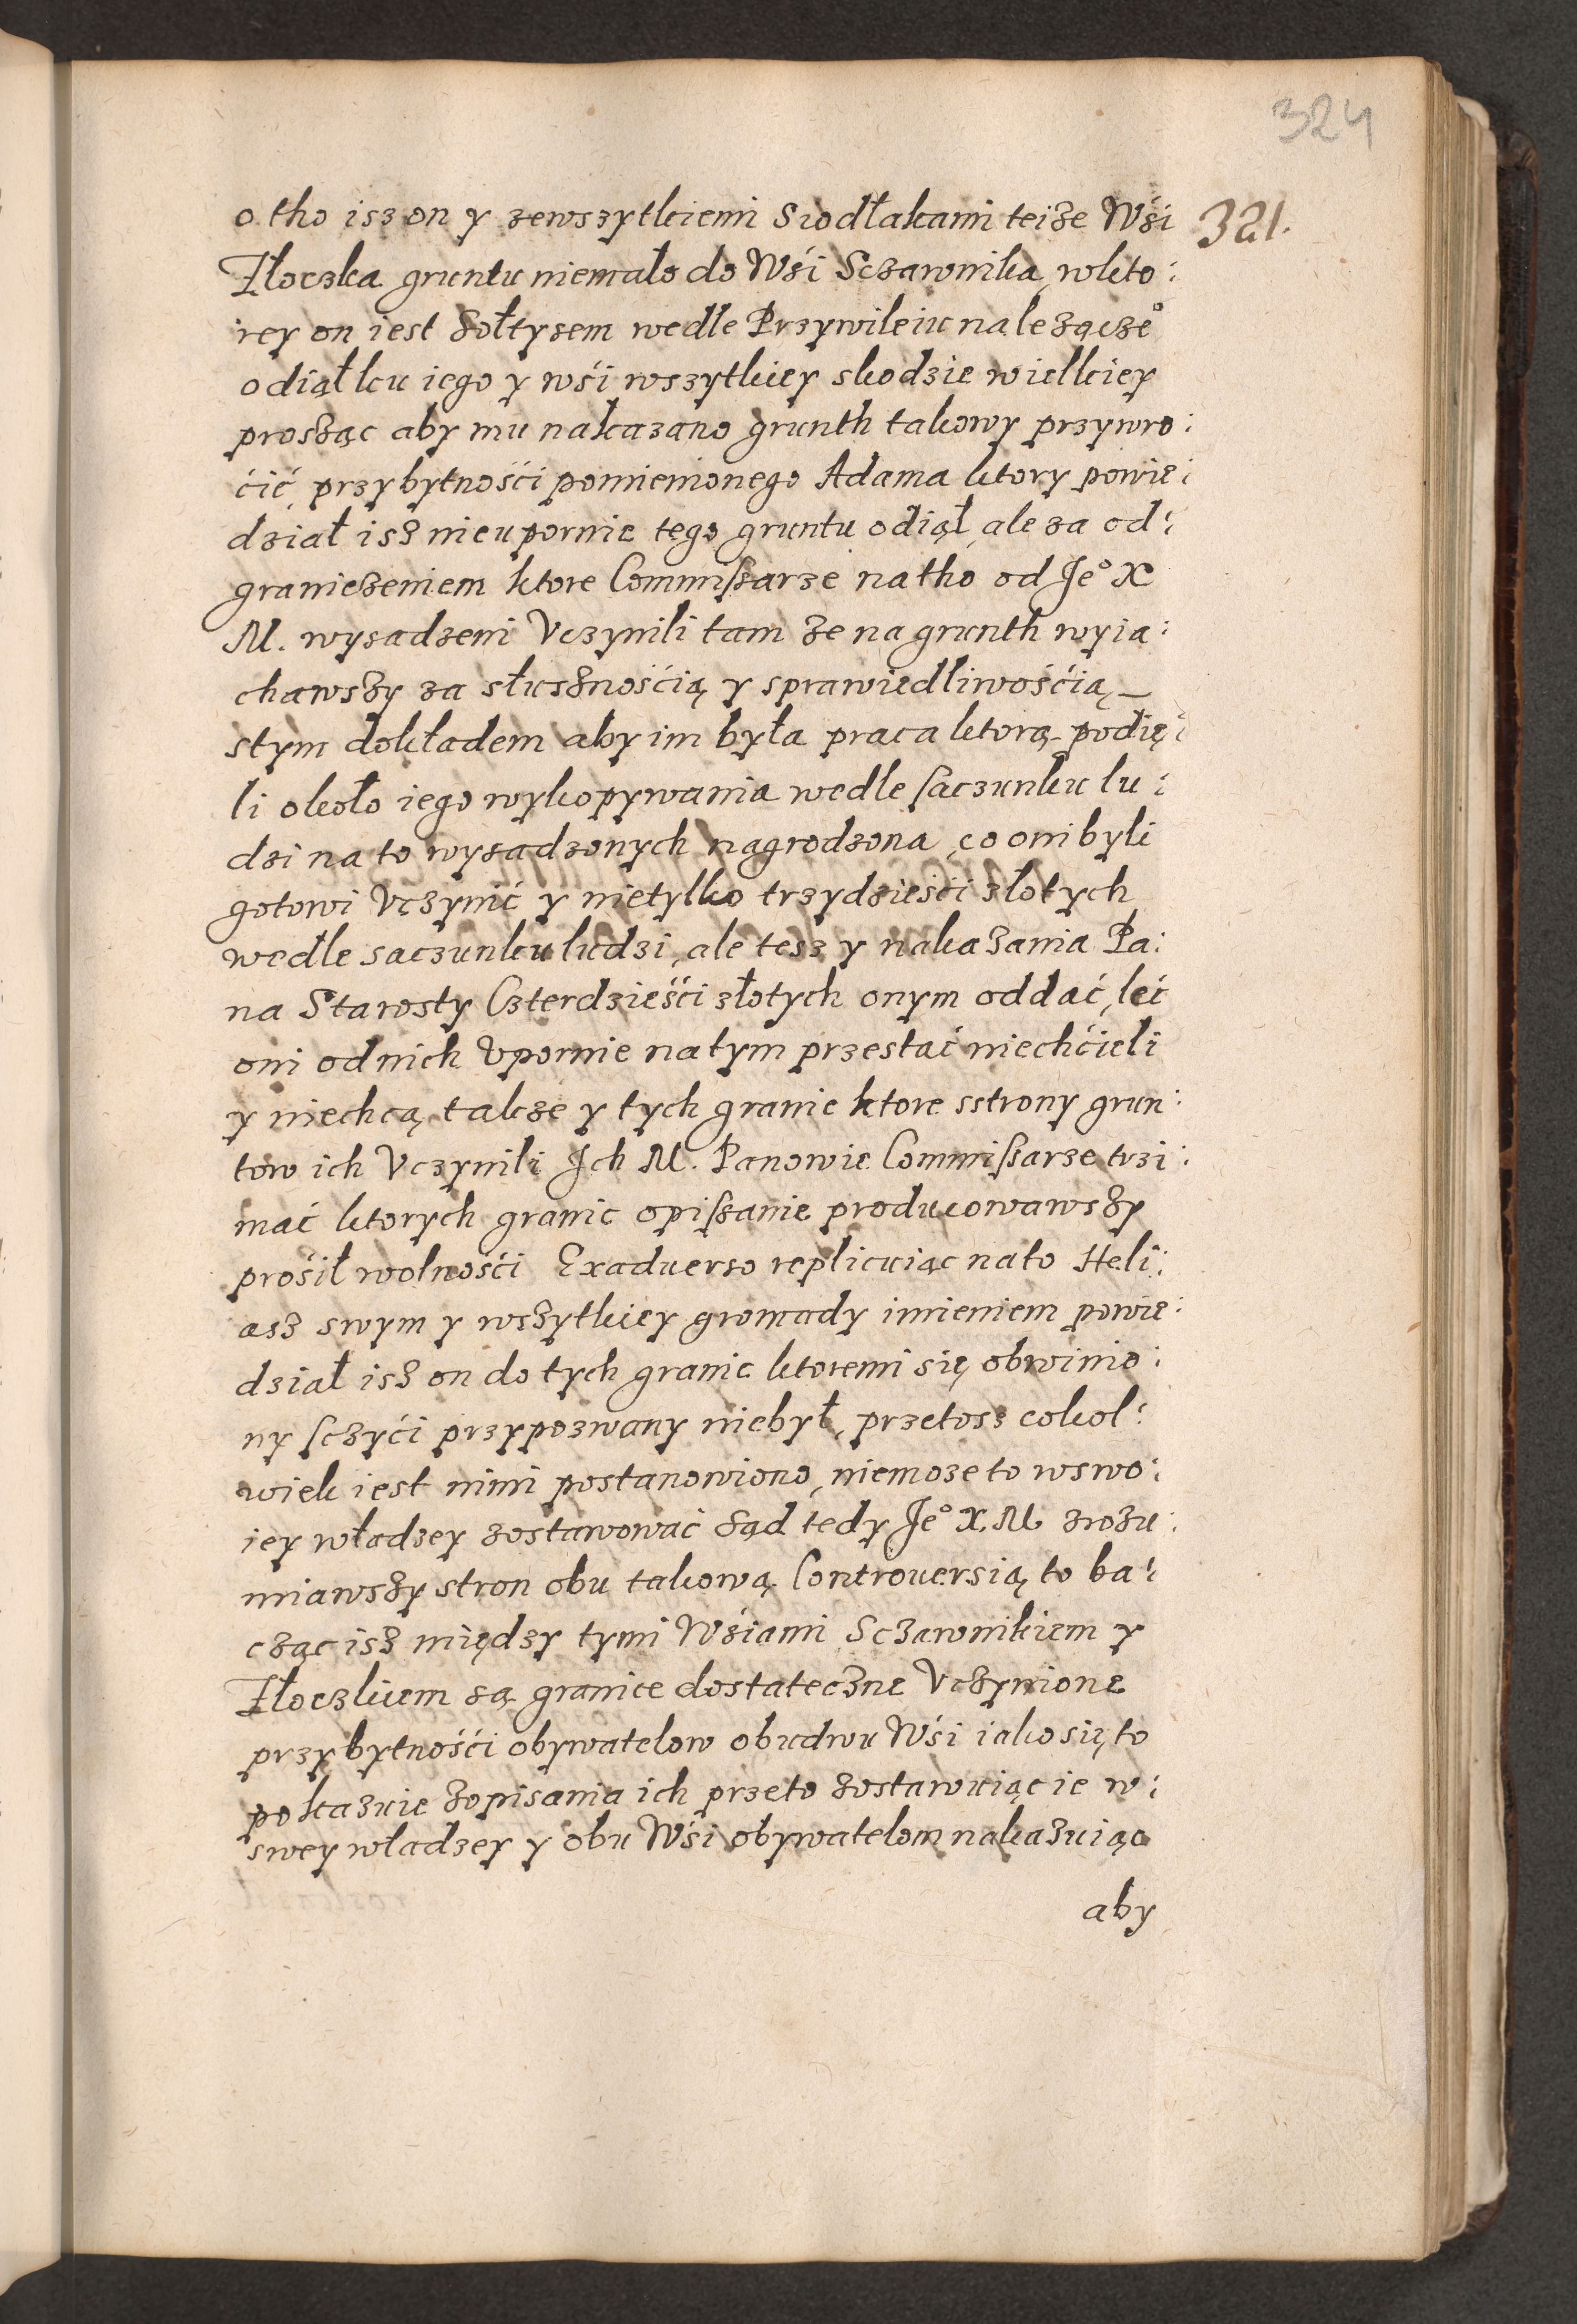 324
321.
o tho isz on y zewszytkiemi Siodłakami teize Wśi
Złoczka gruntu niemało do Wśi Sczawnika, wkto:
rey on iest Sołtysem wedle Przywileiu należącze°
odiął ku iego y wśi wszytkiey skodzie wielkiey
prosząc aby mu nakazano grunth takowy przywro:
ćić, przybytnośći pomienionego Adama ktory powie:
dział isz nieupornie tego gruntu odiął, ale za od:
graniczeniem ktore Commissarze natho od Je° X
M. wysadzeni Vczynili tam ze na grunth wyia:
chawszy za słusznośćią y sprawiedliwośćią_
stym dokładem aby im była praca ktorą podię:
li około iego wykopywania wedle saczunku lu:
dzi na to wysadzonych nagrodzona, co oni byli
gotowi Vczynić y nietylko trzydzieśći złotych
wedle saczunku ludzi, ale tesz y nakazania Pa:
na Starosty Czterdzieśći złotych onym oddać, leć
oni od nich Vpornie natym przestać niechćieli
y niechcą, takze y tych granic ktore sstrony grun:
tow ich Vczynili Jch M. Panowie Commissarze trzi:
mać ktorych granic opissanie producowawszy
prośił wolnośći Exaduerso replicuiąc nato Heli:
asz swym y wszytkiey gromady imieniem powie:
dział isz on do tych granic ktoremi się obwinio:
ny sczyći przypozwany niebył, przetosz cokol:
wiek iest nimi postanowiono, niemoze to wswo:
iey władzey zostawować Sąd tedy Je° X. M zrozu:
miawszy stron obu takową Controuersią, to ba:
cząc isz między tymi Wśiami Sczawnikiem y
Złoczkiem są granice dostateczne Vczynione
przybytnośći obywatelow obudwu Wśi iako się to
pokazuie zopisania ich przeto zostawuiąc ie w:
swey władzey y obu Wśi obywatelom nakazuiąc
aby